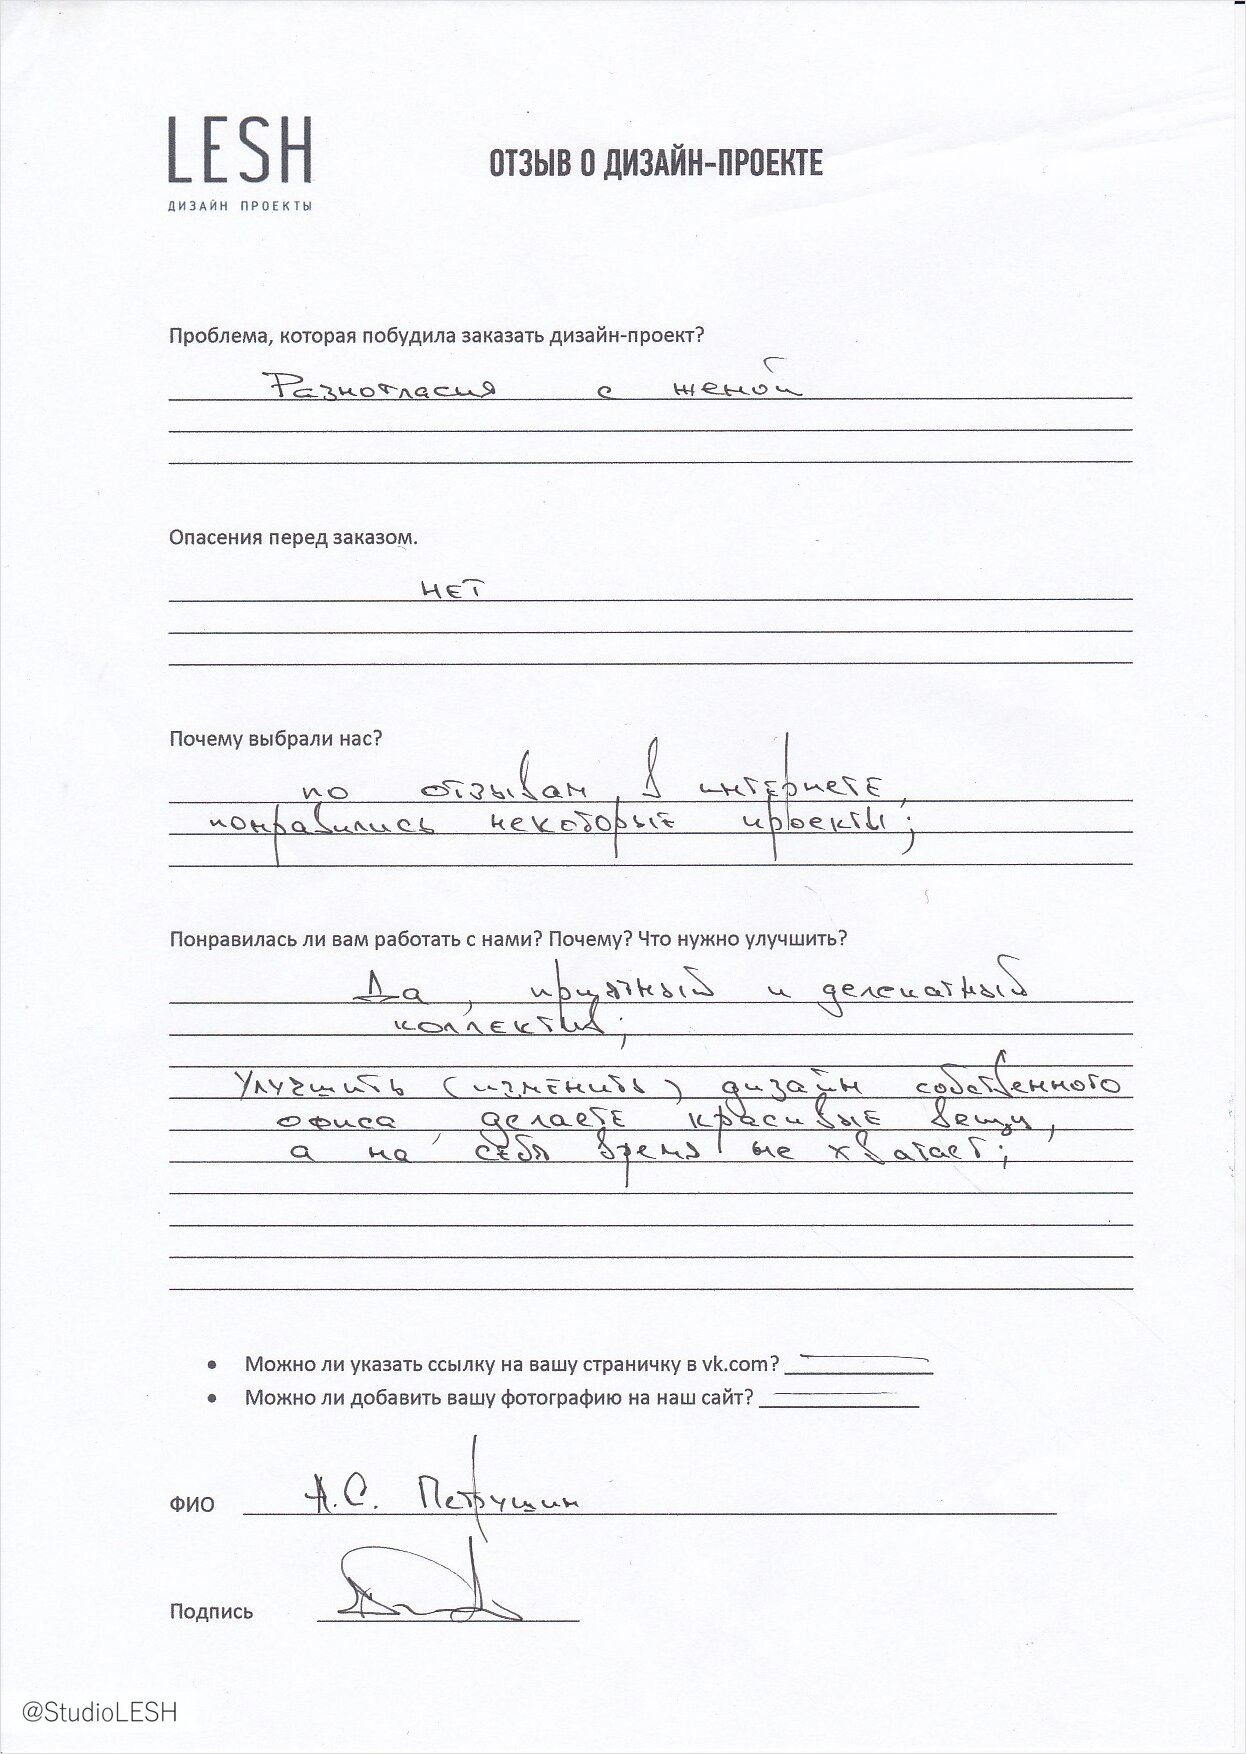 LESH
ДИЗАЙН ПРОЕКТЫ
ОТЗЫВ О ДИЗАЙН-ПРОЕКТЕ
Проблема, которая побудила заказать дизайн-проект?
Разногласия с женой
Опасения перед заказом.
нет
Почему выбрали нас?
по отзывам в интернете,
понравились некоторые проекты;
Понравилась ли вам работать с нами? Почему? Что нужно улучшить?
Да, приятный и деликатный
коллектив;
Улучшить (изменить) дизайн собственного
офиса, делаете красивые вещи,
а на себя время не хватает;
• Можно ли указать ссылку на вашу страничку в vk.com?
• Можно ли добавить вашу фотографию на наш сайт?
ФИО А.С. Петрушин
Подпись
@StudioLESH